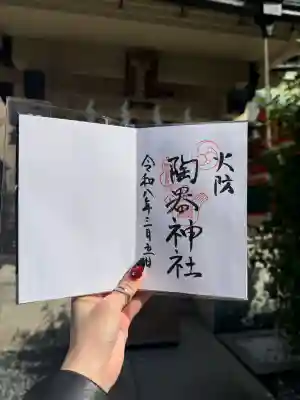 火防
陶器神社
令和八年三月五日